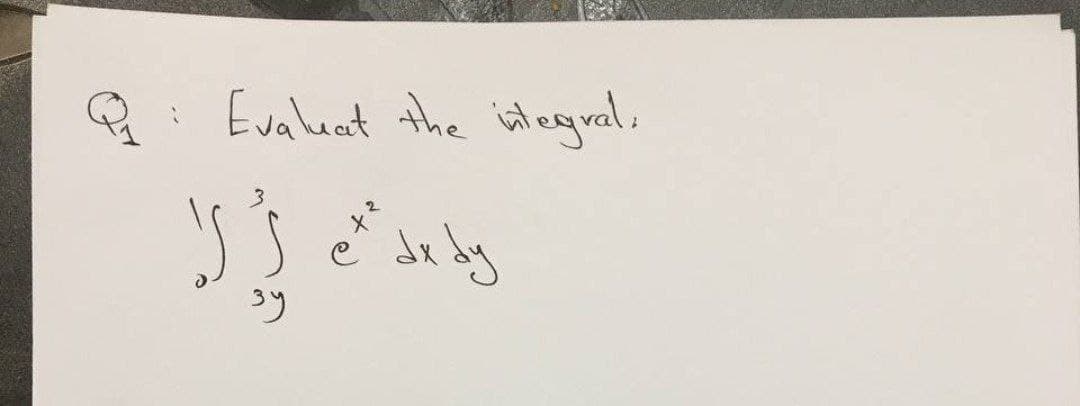 Q1 : Evaluat the integral:
∫₀¹ ∫₃ᵧ³ e^x² dx dy